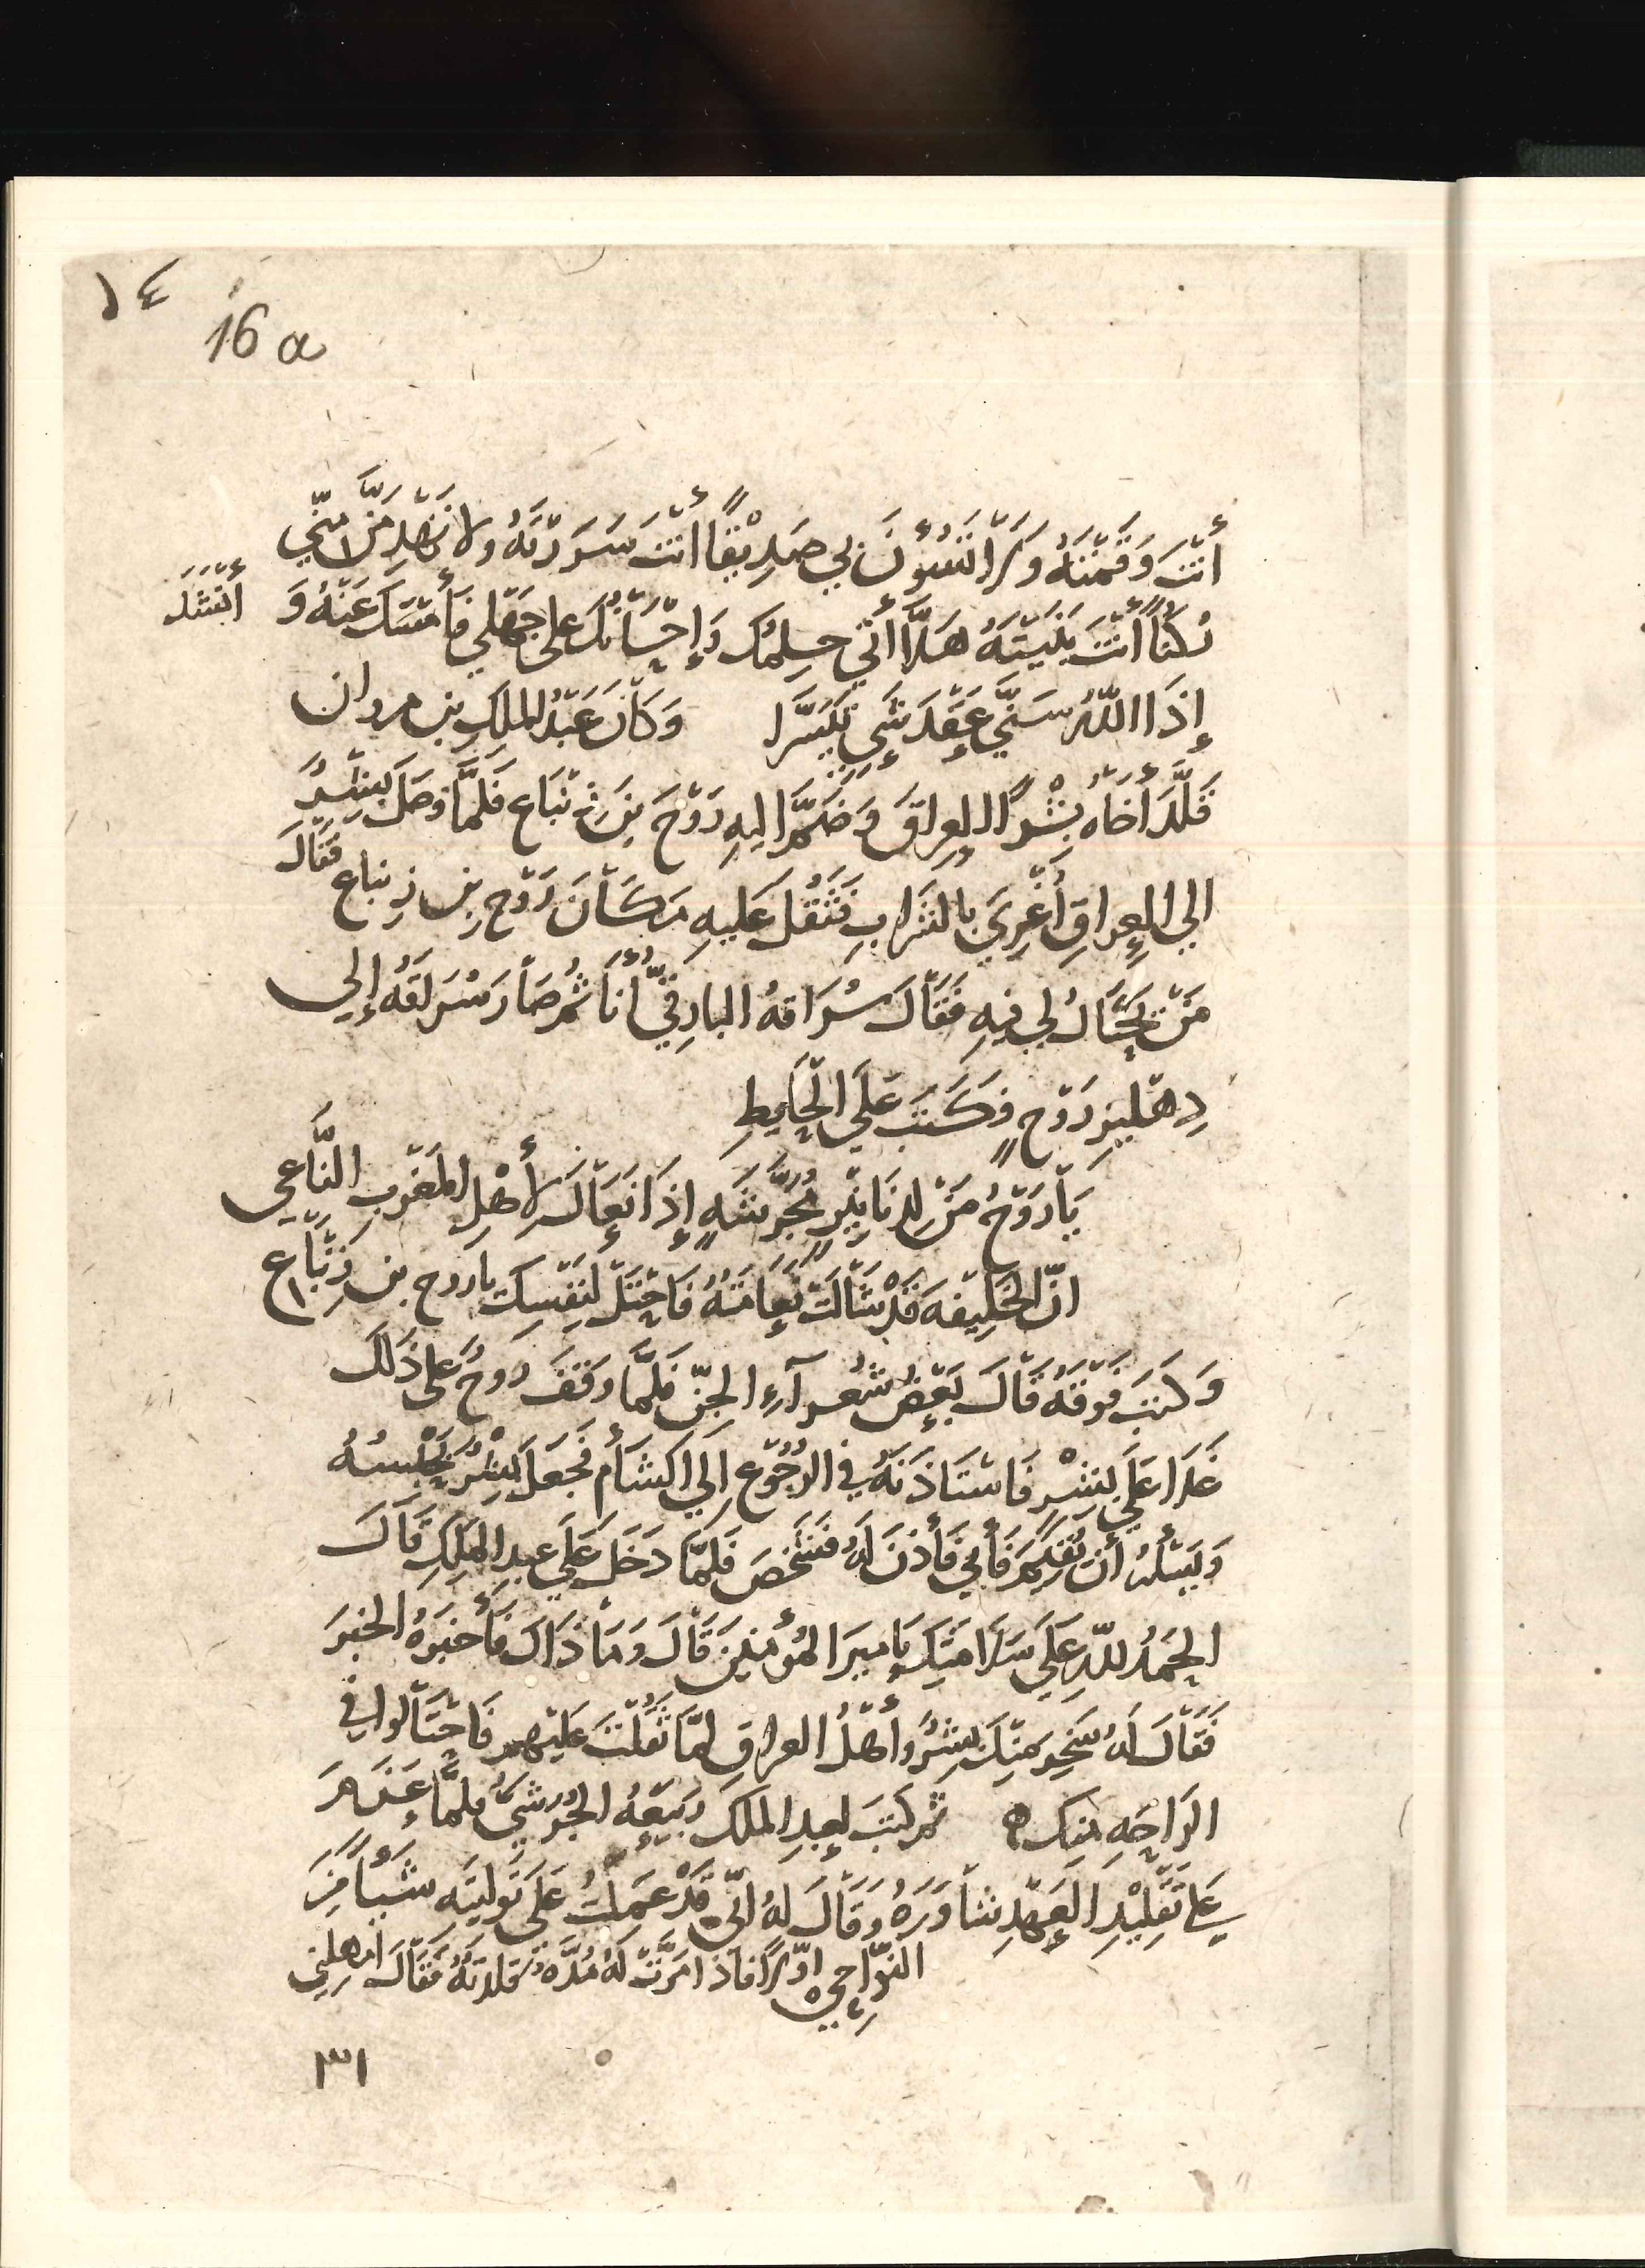 ١٤
16 a
أَنْتَ وَقَمْتَهُ وَلَا تَسُوْنَ بي صَدِيْقًا أَنْتَ سَرَرْتَهُ ولا تَهْدِمَنَّ منّي
رُكنًا أَنْتَ بَنَيْتَهُ هَلَّا اتي حِلمُك وَإِحْسَانُكَ على جَهْلي فَأَمْسَكَ عَنْهُ وَ أَنْشَدَ
إِذَا اللّهُ سَنَّي عَقْدَ شَيٍ تَيَسَّرا وَكَانَ عَبْدُ الملكِ بن مروان
قَلَّدَ أَخَاهُ بِشْرًا العِراقَ وَضَمَّ اليهِ رَوْحَ بنَ زِنْبَاع فَلَمَّا وَصَلَ بِشْرٌ
الي العِراقِ أُغْرِيَ بالشَرابِ فَثَقُلَ عَليهِ مَكَانَ رَوْح بن زِنباع فَقَالَ
مَنْ يَحْتَالُ لي فيهِ فَقَالَ سُرَاقةُ البارِقيُّ أَنَا ثُمَّ صَارَ مُتَسَرِلقَهُ إلي
دِهْلِيزِ رَوْحٍ فَكَتَبَ عَلَي الْحَايِطِ
يَا رَوْحُ مَنْ لِدَنَانِيْرٍ مُجَرَّشَةٍ إِذَا نَعَاكَ لأَهْلِ المَغْرِبِ النَّاعِي
انّ الخَلِيْفَةَ قَدْ شَالَتْ نَعَامَتُهُ فَاحْتَلْ لنَفْسِكَ يا روح بن زِنْبَاع
وَكتبَ فَوْقَهُ قَالَ بَعْضُ شُعرآءِ الجنّ فَلَمَّا وقفَ روحٌ على ذَلكَ
غَدَا عَلَي بِشْرٍ فَاسْتَاذَنَهُ في الرُجُوْعِ إلَي الشَأم فَجَعَلَ بِشْرٌ يَحْبِسُهُ
وَيسْئلهُ أَن يُقِيمَ فَأَبي فَأَذنَ لَهُ فَشَخَصَ فَلمَّا دَخَلَ عَلَي عبدِ الملِكِ قَالَ
الحَمْدُ للّهِ عَلَي سَلَامَتِكَ يَا ميرَ المُؤْمنينَ قَالَ وَمَا ذَاكَ فَأَخبَرهُ الخبَرَ
فَقَالَ لهُ سَخِرَ مِنْكَ بِشْرٌ وأَهْلُ العراقِ لمَّا ثَقُلْتَ عَليْهم فَاحْتَالوا في
الرَاحَةِ منك ثم كتبَ لعبدِ الملكَ رَبيْعَةُ الجُرَشيُّ فلمَّا عَزَمَ
عَلى تَقلِيْدِ العَهْدِ شاوَرَهُ وَقَالَ لهُ انّي قَدْ عَمِلتُ عَلَى تَوليَتِهِ شَيأً مِنَ
النَوَاحي اوّلًا فَاذا مَرَّتْ لَهُ مُدَّةٌ قلدتهُ فَقَالَ امهلني
٣١